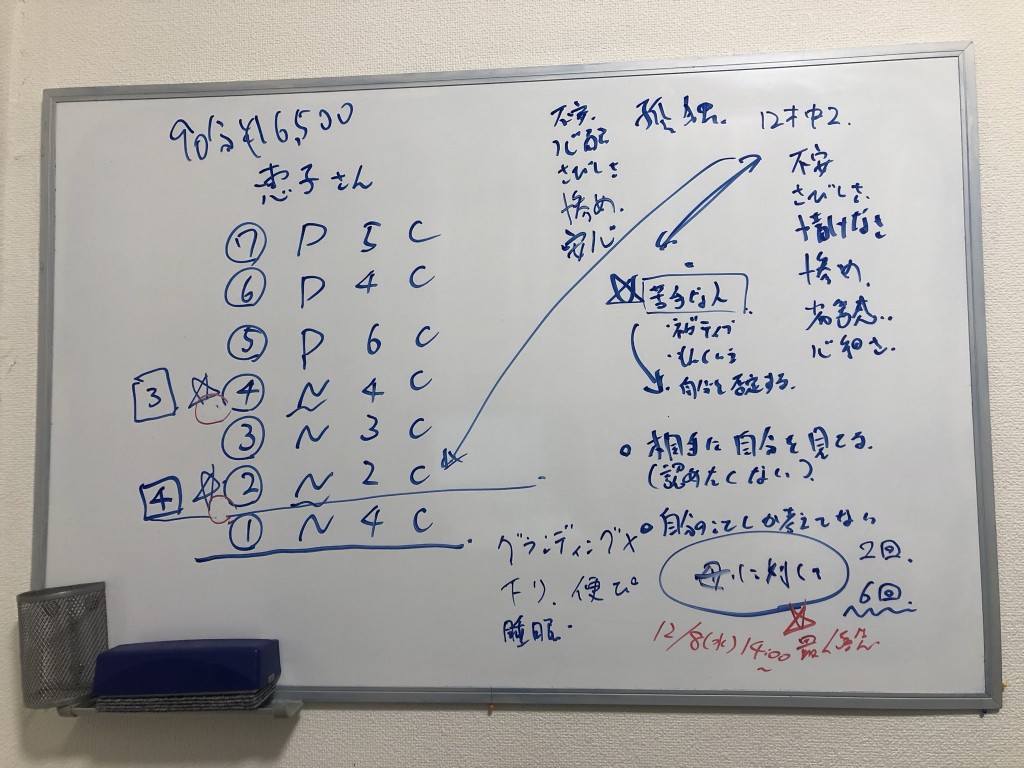 90分¥16,500
恵子さん
⑦ P 5 C
⑥ P 4 C
⑤ P 6 C
3 ④ N 4 C
③ N 3 C
4 ② N 2 C
① N 4 C
不安.
心配
さびしさ
惨め.
安心
孤独.
12才中2.
不安
さびしさ.
情けなさ
惨め.
劣等感..
心細さ.
苦手な人
・ネガティブ
・自分を否定する.
相手に自分を見てる.
(認めたくない?)
自分のことしか考えてない
母に対して
2回.
6回
グラウンディング×
下り.便ぴ
睡眠.
12/8(水)14:00 最終